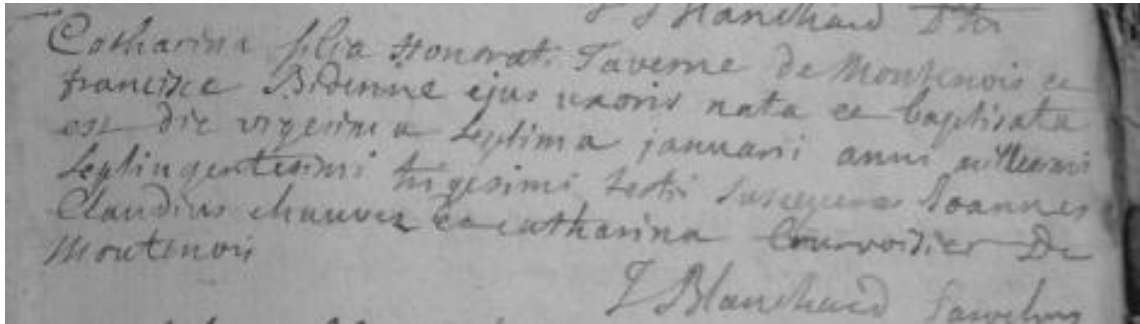 J Blanchard Ptr
Catharina filia Honorat. Taverne de Montenois et
francisce Bidenine ejus uxoris nata et baptisata
est die vigesima septima januarii anni millesimi
septingentesimi trigesimi sexti suscepere Joannes
Claudius chauvez et catharina Courvoisier De
Montenois
J Blanchard